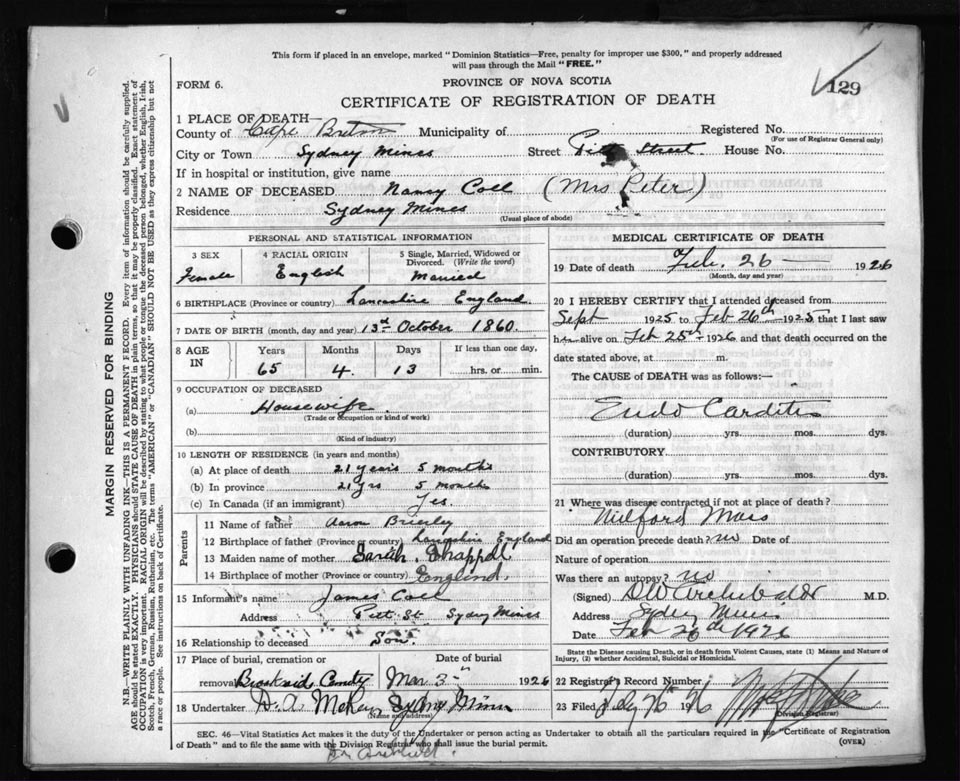 This form if placed in an envelope, marked "Dominion Statistics—Free, penalty for improper use $300," and properly addressed
will pass through the Mail "FREE."
FORM 6.
PROVINCE OF NOVA SCOTIA
129
CERTIFICATE OF REGISTRATION OF DEATH
1 PLACE OF DEATH—
County of Cape Breton Municipality of Registered No.
(For use of Registrar General only)
City or Town Sydney Mines Street Pitt Street. House No.
If in hospital or institution, give name
2 NAME OF DECEASED Nancy Coll (Mrs Peter)
Residence Sydney Mines
(Usual place of abode)
PERSONAL AND STATISTICAL INFORMATION
3 SEX 4 RACIAL ORIGIN 5 Single, Married, Widowed or Divorced. (Write the word)
Female English Married
6 BIRTHPLACE (Province or country) Lancashire England
7 DATE OF BIRTH (month, day and year) 13th October 1860.
8 AGE IN Years Months Days If less than one day,
65 4. 13 hrs. or min.
9 OCCUPATION OF DECEASED
(a) Housewife
(Trade or occupation or kind of work)
(b)
(Kind of industry)
10 LENGTH OF RESIDENCE (in years and months)
(a) At place of death 21 years 5 months
(b) In province 21 yrs 5 months
(c) In Canada (if an immigrant) Yes.
Parents
11 Name of father Aaron Brierley
12 Birthplace of father (Province or country) England
13 Maiden name of mother Sarah Chappell
14 Birthplace of mother (Province or country) England.
15 Informant's name James Coll
Address Pitt St. Sydney Mines
16 Relationship to deceased Son.
17 Place of burial, cremation or removal Date of burial
Mar 3 1926
18 Undertaker D. A. McKay Sydney Mines
(Name and address)
MEDICAL CERTIFICATE OF DEATH
19 Date of death Feb. 26 1926
(Month, day and year)
20 I HEREBY CERTIFY that I attended deceased from
Sept 1925 to Feb 26th 1925 that I last saw
her alive on Feb 25th 1926 and that death occurred on the
date stated above, at m.
The CAUSE of DEATH was as follows:—
Endo Carditis
(duration) yrs. mos. dys.
CONTRIBUTORY
(duration) yrs. mos. dys.
21 Where was disease contracted if not at place of death?
Milford Mass
Did an operation precede death? no Date of
Nature of operation
Was there an autopsy? no
(Signed) DW Archibald M.D.
Address Sydney Mines
Date Feb 26th 1926
State the Disease causing Death, or in Death from Violent Causes, state (1) Means and Nature of
Injury, (2) whether Accidental, Suicidal or Homicidal.
22 Registrar's Record Number
23 Filed
(Division Registrar)
SEC. 46—Vital Statistics Act makes it the duty of the Undertaker or person acting as Undertaker to obtain all the particulars required in the "Certificate of Registration
of Death" and to file the same with the Division Registrar who shall issue the burial permit.
(OVER)
Dr Archibald.
MARGIN RESERVED FOR BINDING
N.B.—WRITE PLAINLY WITH UNFADING INK—THIS IS A PERMANENT RECORD. Every item of information should be carefully supplied.
AGE should be stated EXACTLY. PHYSICIANS should STATE CAUSE OF DEATH in plain terms, so that it may be properly classified. Exact statement of
OCCUPATION is very important. RACIAL ORIGIN will be described by stating to what people or tongue the deceased person belonged, whether English, Irish,
Scotch, French, German, Russian, Ruthenian, etc. The terms "AMERICAN" or "CANADIAN" SHOULD NOT BE USED as they express citizenship but not
a race or people. See instructions on back of Certificate.